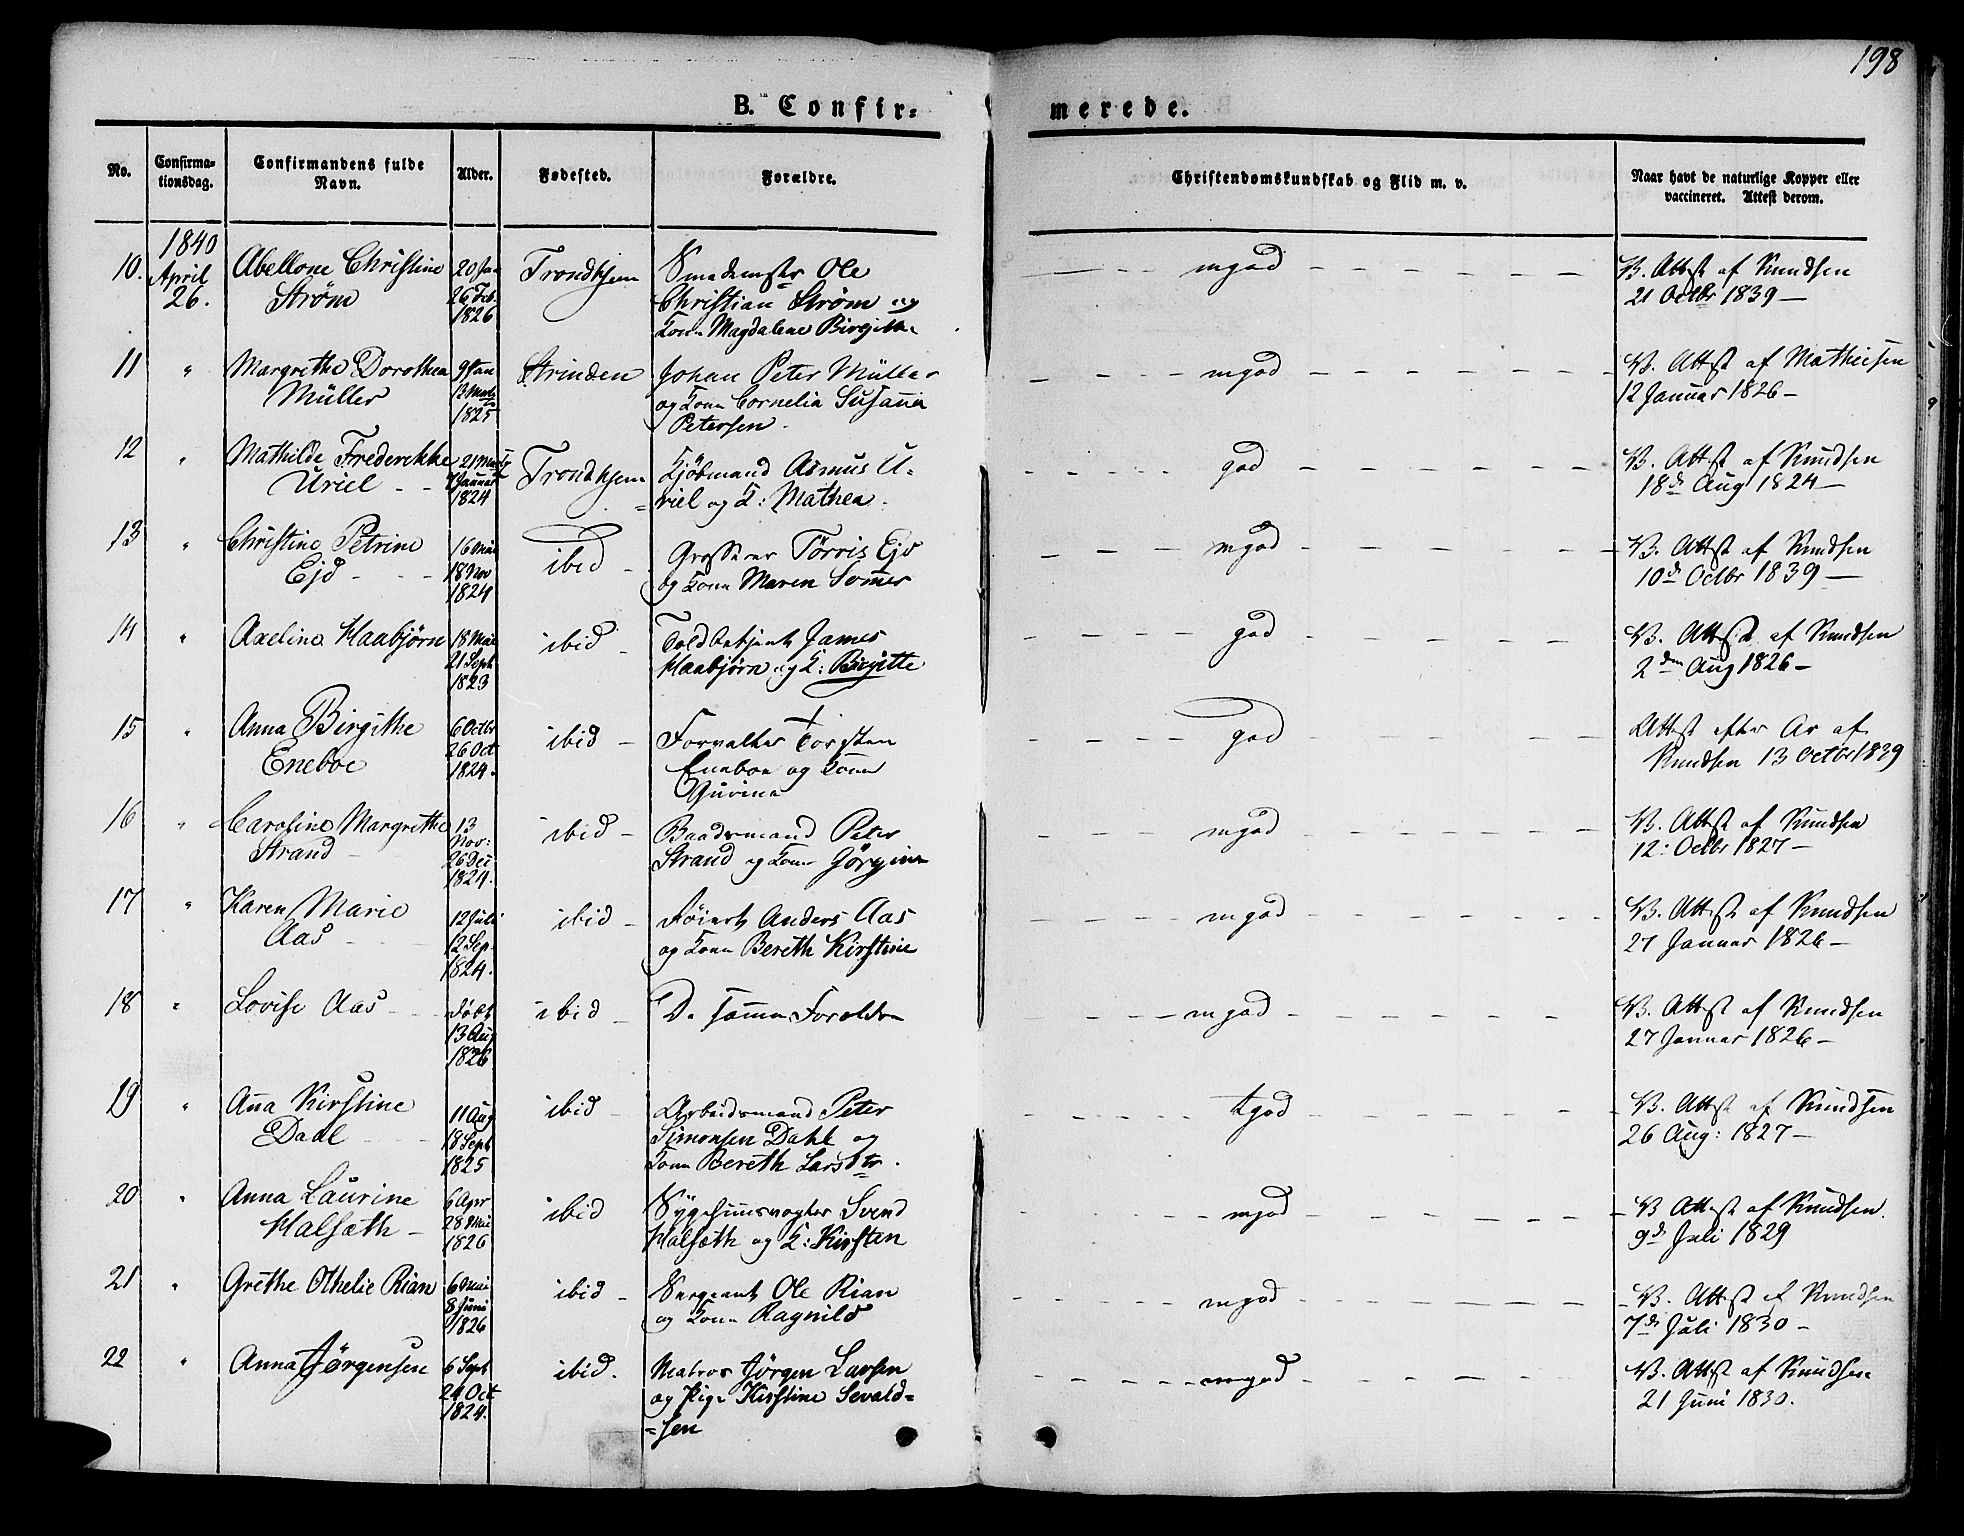 198
B. Confir= merede.
No. Confirma=tionsdag. Confirmandens fulde Navn. Alder. Fødested. Forældre. Christendomskundskab og Flid m. v. Naar havt de naturlige Kopper eller vaccineret. Attest derom.
1840
10. April Abellone Christine 20 Jan Trondhjem Ole mgod V. Attst af Knudsen
26. Strøm 26 Feb. Christian Strøm og 21 Octbr 1839
1826 Kone Magdalene Birgitte
11 " Margrethe Dorothea 9 Jan Strinden Johan Peter Müller mgod V. Attst af Mathiesen
Müller 13 Marts og Kone Cornelia Susanna 12 Januar 1826
1825 Petersen
12 " Mathilde Frederikke 21 Trondhjem Kjöbmand Asmus U= god V. Attst af Knudsen
Uriel Januar riel og K: Mathea 18d Aug 1824
1824
13 " Christine Petrine 16 Mai ibid Tørris Ejd mgod V. Attst af Knudsen
Ejd 18 Nov og Kone Maren Somer 10d Octbr 1839
1824
14 " Axeline Haabjörn 18 Mai ibid Toldbetjent James god V. Attst af Knudsen
21 Sept Haabjörn og K: Birgitte 2den Aug 1826
1823
15 " Anna Birgithe 6 Octbr ibid Forvalter Torsten god Attst efter Ar af
Eneboe 26 Oct Eneboe og Kone Knudsen 13 Octbr 1839
1824. Gurine
16 " Caroline Margrethe 13 ibid Baadsmand Peter mgod V. Attst af Knudsen
Strand Nov: Strand og Kone Görgine 12: Octbr 1827
26 Dec
1824.
17 " Karen Marie 12 Juli ibid Anders Aas mgod V. Attst af Knudsen
Aas 12 Sep. og Kone Bereth Kirstine 27 Januar 1826
1824.
18 " Lovise Aas döbt ibid De samme Forældre mgod V. Attst af Knudsen
13 Aug 27 Januar 1826
1826
19 " Anna Kirstine 11 Aug ibid Arbeidsmand Peter tgod V. Attst af Knudsen
Dahl 18 Sept Simonsen Dahl og 26 Aug: 1827
1825 Kone Bereth Larsdtr.
20 " Anna Laurine 6 Apr ibid Sygehuusvogter Svend mgod V Attst af Knudsen.
Halsæth 28 Mai Halsæth og K: Kirsten 9d Juli 1829
1826
21 " Grethe Othelie Rian 6 Mai ibid Sergeant Ole Rian mgod V. Attst af Knudsen
8 Juni og Kone Ragnild 7d Juli 1830
1826
22 " Anna Jörgensen 6 Sept ibid. Matros Jörgen Larsen mgod V. Attst af Knudsen
24 Oct og Pige Kirstine Sevald= 21 Juni 1830.
1824. =sen